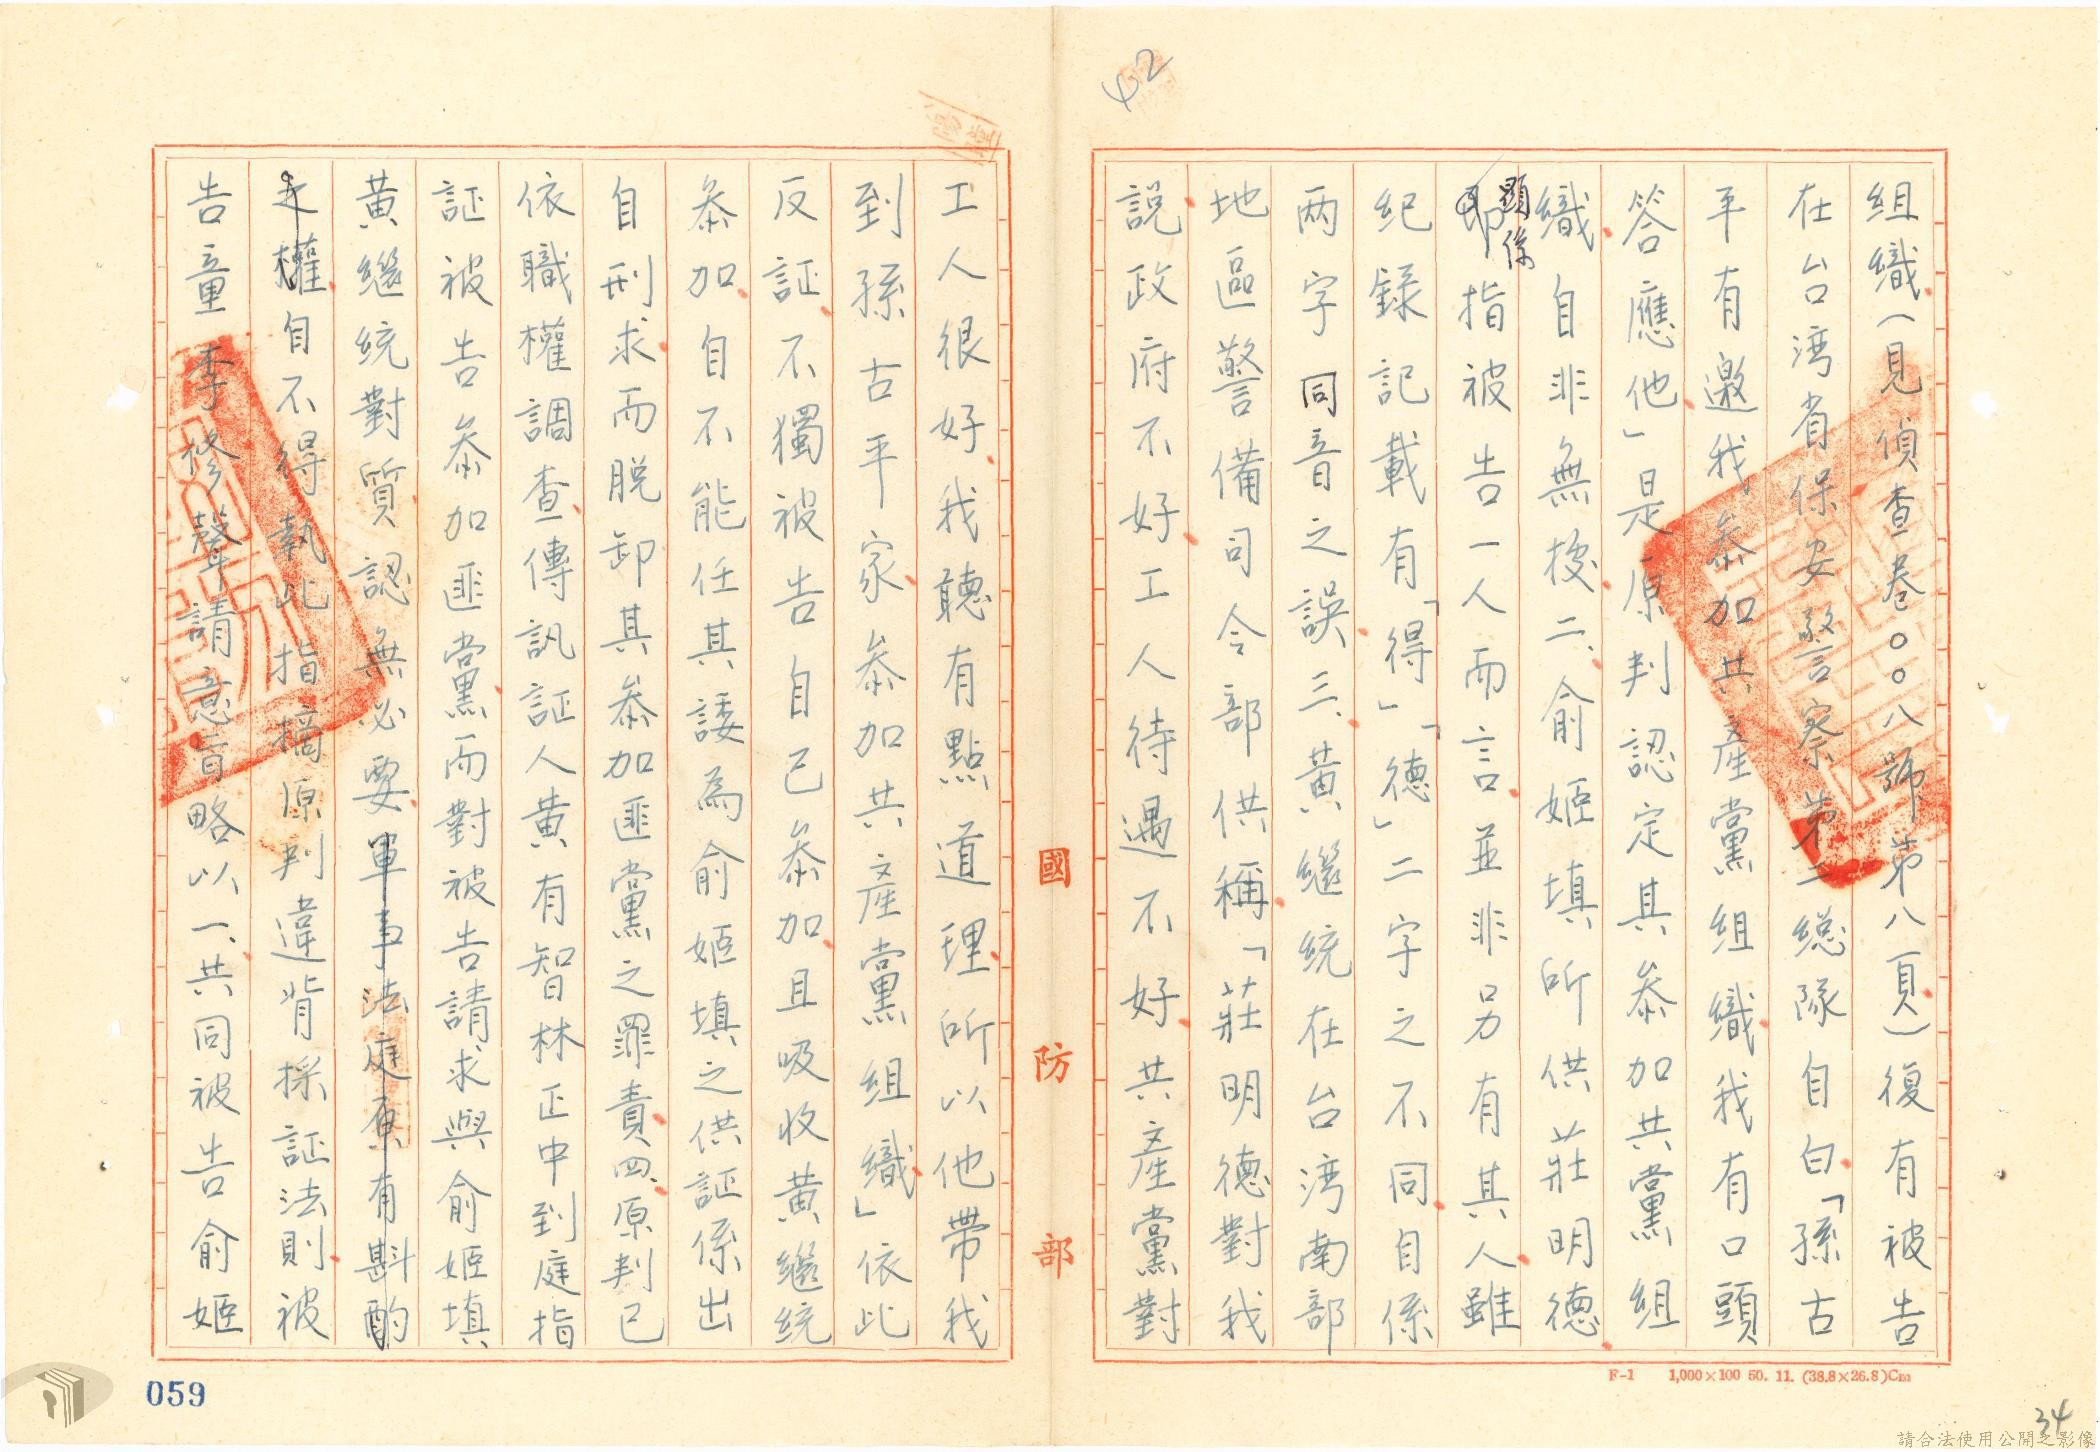 42
組織（見偵查卷〇〇〇八號第八頁）復有被告
在台湾省保安警察第二總隊自白「孫古
平有邀我參加共產黨組織我有口頭
答應他」是原判認定其參加共黨組
織自非無授二、俞姬填所供莊明德
顯係
即指被告一人而言並非另有其人雖
紀錄記載有「得」「德」二字之不同自係
两字同音之誤三、黃繼統在台湾南部
地區警備司令部供稱「莊明德對我
說政府不好工人待遇不好共產黨對
國防部
工人很好我聽有點道理所以他帶我
到孫古平家參加共產黨組織」依此
反証不獨被告自己參加且吸收黃繼統
參加自不能任其諉為俞姬填之供証係出
自刑求而脫卸其參加匪黨之罪責四、原判已
依職權調查傳訊証人黃有智林正中到庭指
証被告參加匪黨而對被告請求與俞姬填
黃繼統對質認無必要軍事法庭原有斟酌
之權自不得執此指摘原判違背採証法則被
告童李修聲請意旨略以一、共同被告俞姬
F-1 1,000×100 50. 11. (38.8×26.8)Cm
059
34
請合法使用公開之影像